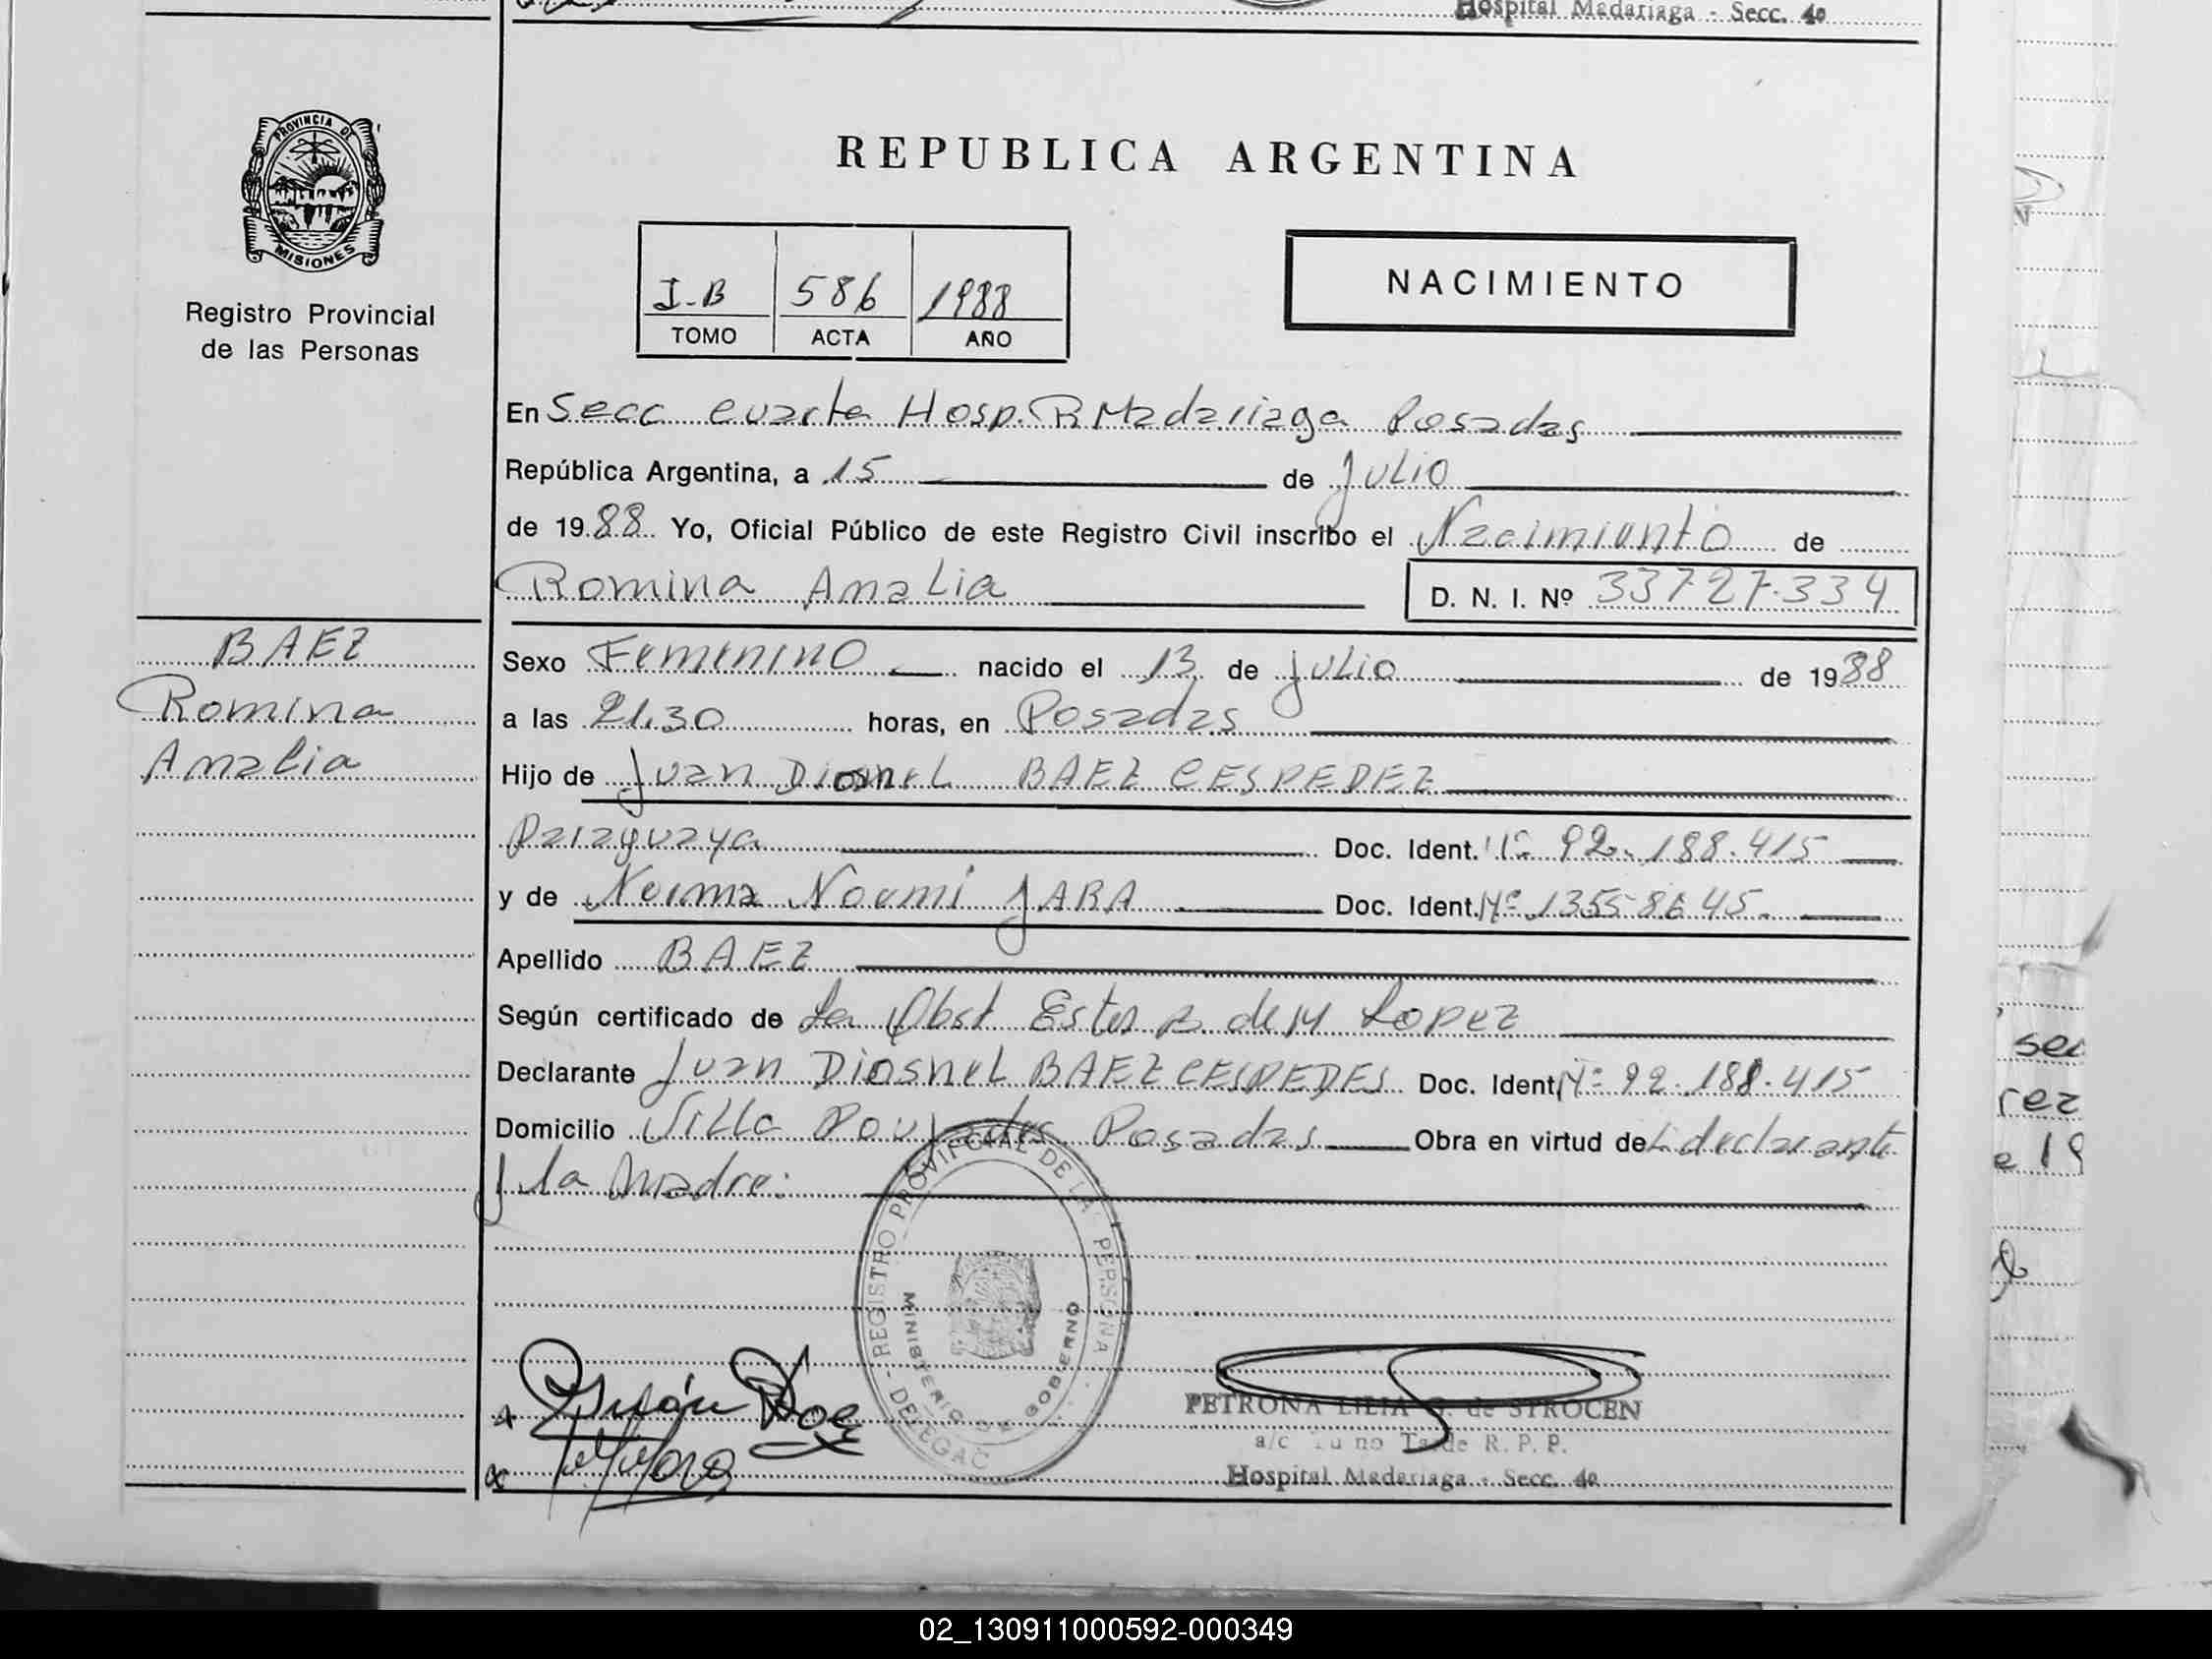 Hospital Madariaga - Secc. 4a
PROVINCIA DE
MISIONES
Registro Provincial
de las Personas
REPUBLICA ARGENTINA
I-B 586 1988
TOMO ACTA AÑO
NACIMIENTO
En Secc cuarta Hosp. R Madariaga Posadas
República Argentina, a 15 de Julio
de 1988 Yo, Oficial Público de este Registro Civil inscribo el Nacimiento de
Romina Amalia D. N. I. Nº 33727.334
BAEZ
Romina
Amalia
Sexo Femenino nacido el 13 de Julio de 1988
a las 21.30 horas, en Posadas
Hijo de Juan Diosnel BAEZ CESPEDEZ
Paraguaya Doc. Ident. Nº 92.188.415
y de Norma Noemi JARA Doc. Ident. Nº 13558645.
Apellido BAEZ
Según certificado de La Obst Ester de M Lopez
Declarante Juan Diosnel BAEZ CESPEDES Doc. Ident. Nº 92.188.415
Domicilio Villa Posadas Obra en virtud del declarante
y la Madre:
REGISTRO PROVINCIAL DE LA PERSONA
MINISTERIO DE GOBIERNO
DELEGAC
PETRONA LILIA G. de SPROCEN
a/c Turno Tarde R. P. P.
Hospital Madariaga - Secc. 4a
rez
e 19
02_130911000592-000349